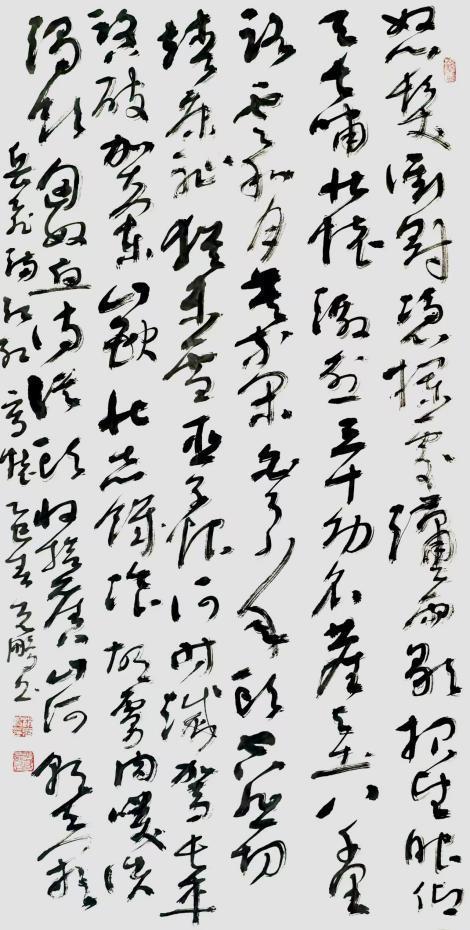 怒髮衝冠憑欄處瀟瀟雨歇抬望眼仰
天長嘯壯懷激烈三十功名塵與土八千里
路雲和月莫等閑白了少年頭空悲切
靖康恥猶未雪臣子恨何時滅駕長車
踏破賀蘭山缺壯志飢餐胡虜肉笑談
渴飲匈奴血待從頭收拾舊山河朝天闕
岳飛滿江紅寫懷乙巳春克鵬書